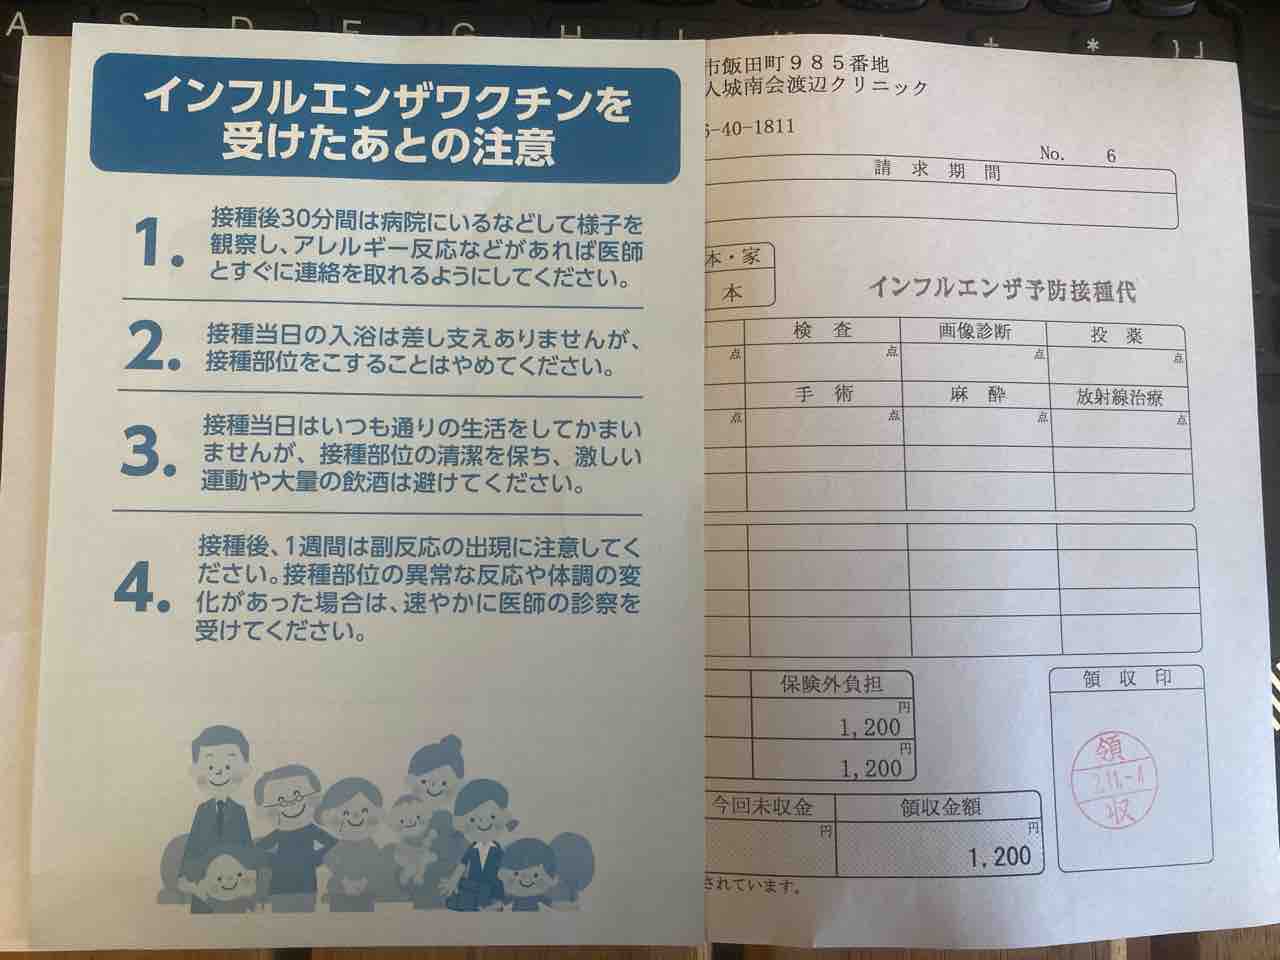 インフルエンザワクチンを
受けたあとの注意
1.
接種後30分間は病院にいるなどして様子を
観察し、アレルギー反応などがあれば医師
とすぐに連絡を取れるようにしてください。
2.
接種当日の入浴は差し支えありませんが、
接種部位をこすることはやめてください。
3.
接種当日はいつも通りの生活をしてかまい
ませんが、接種部位の清潔を保ち、激しい
運動や大量の飲酒は避けてください。
4.
接種後、1週間は副反応の出現に注意してく
ださい。接種部位の異常な反応や体調の変
化があった場合は、速やかに医師の診察を
受けてください。
市飯田町985番地
人城南会渡辺クリニック
-40-1811
No. 6
請求期間
本・家
本
インフルエンザ予防接種代
検査 画像診断 投薬
点 点 点 点
手術 麻酔 放射線治療
点 点 点 点
保険外負担
円
1,200
円
1,200
今回未収金 領収金額
円 円
1,200
されています。
領収印
領
収